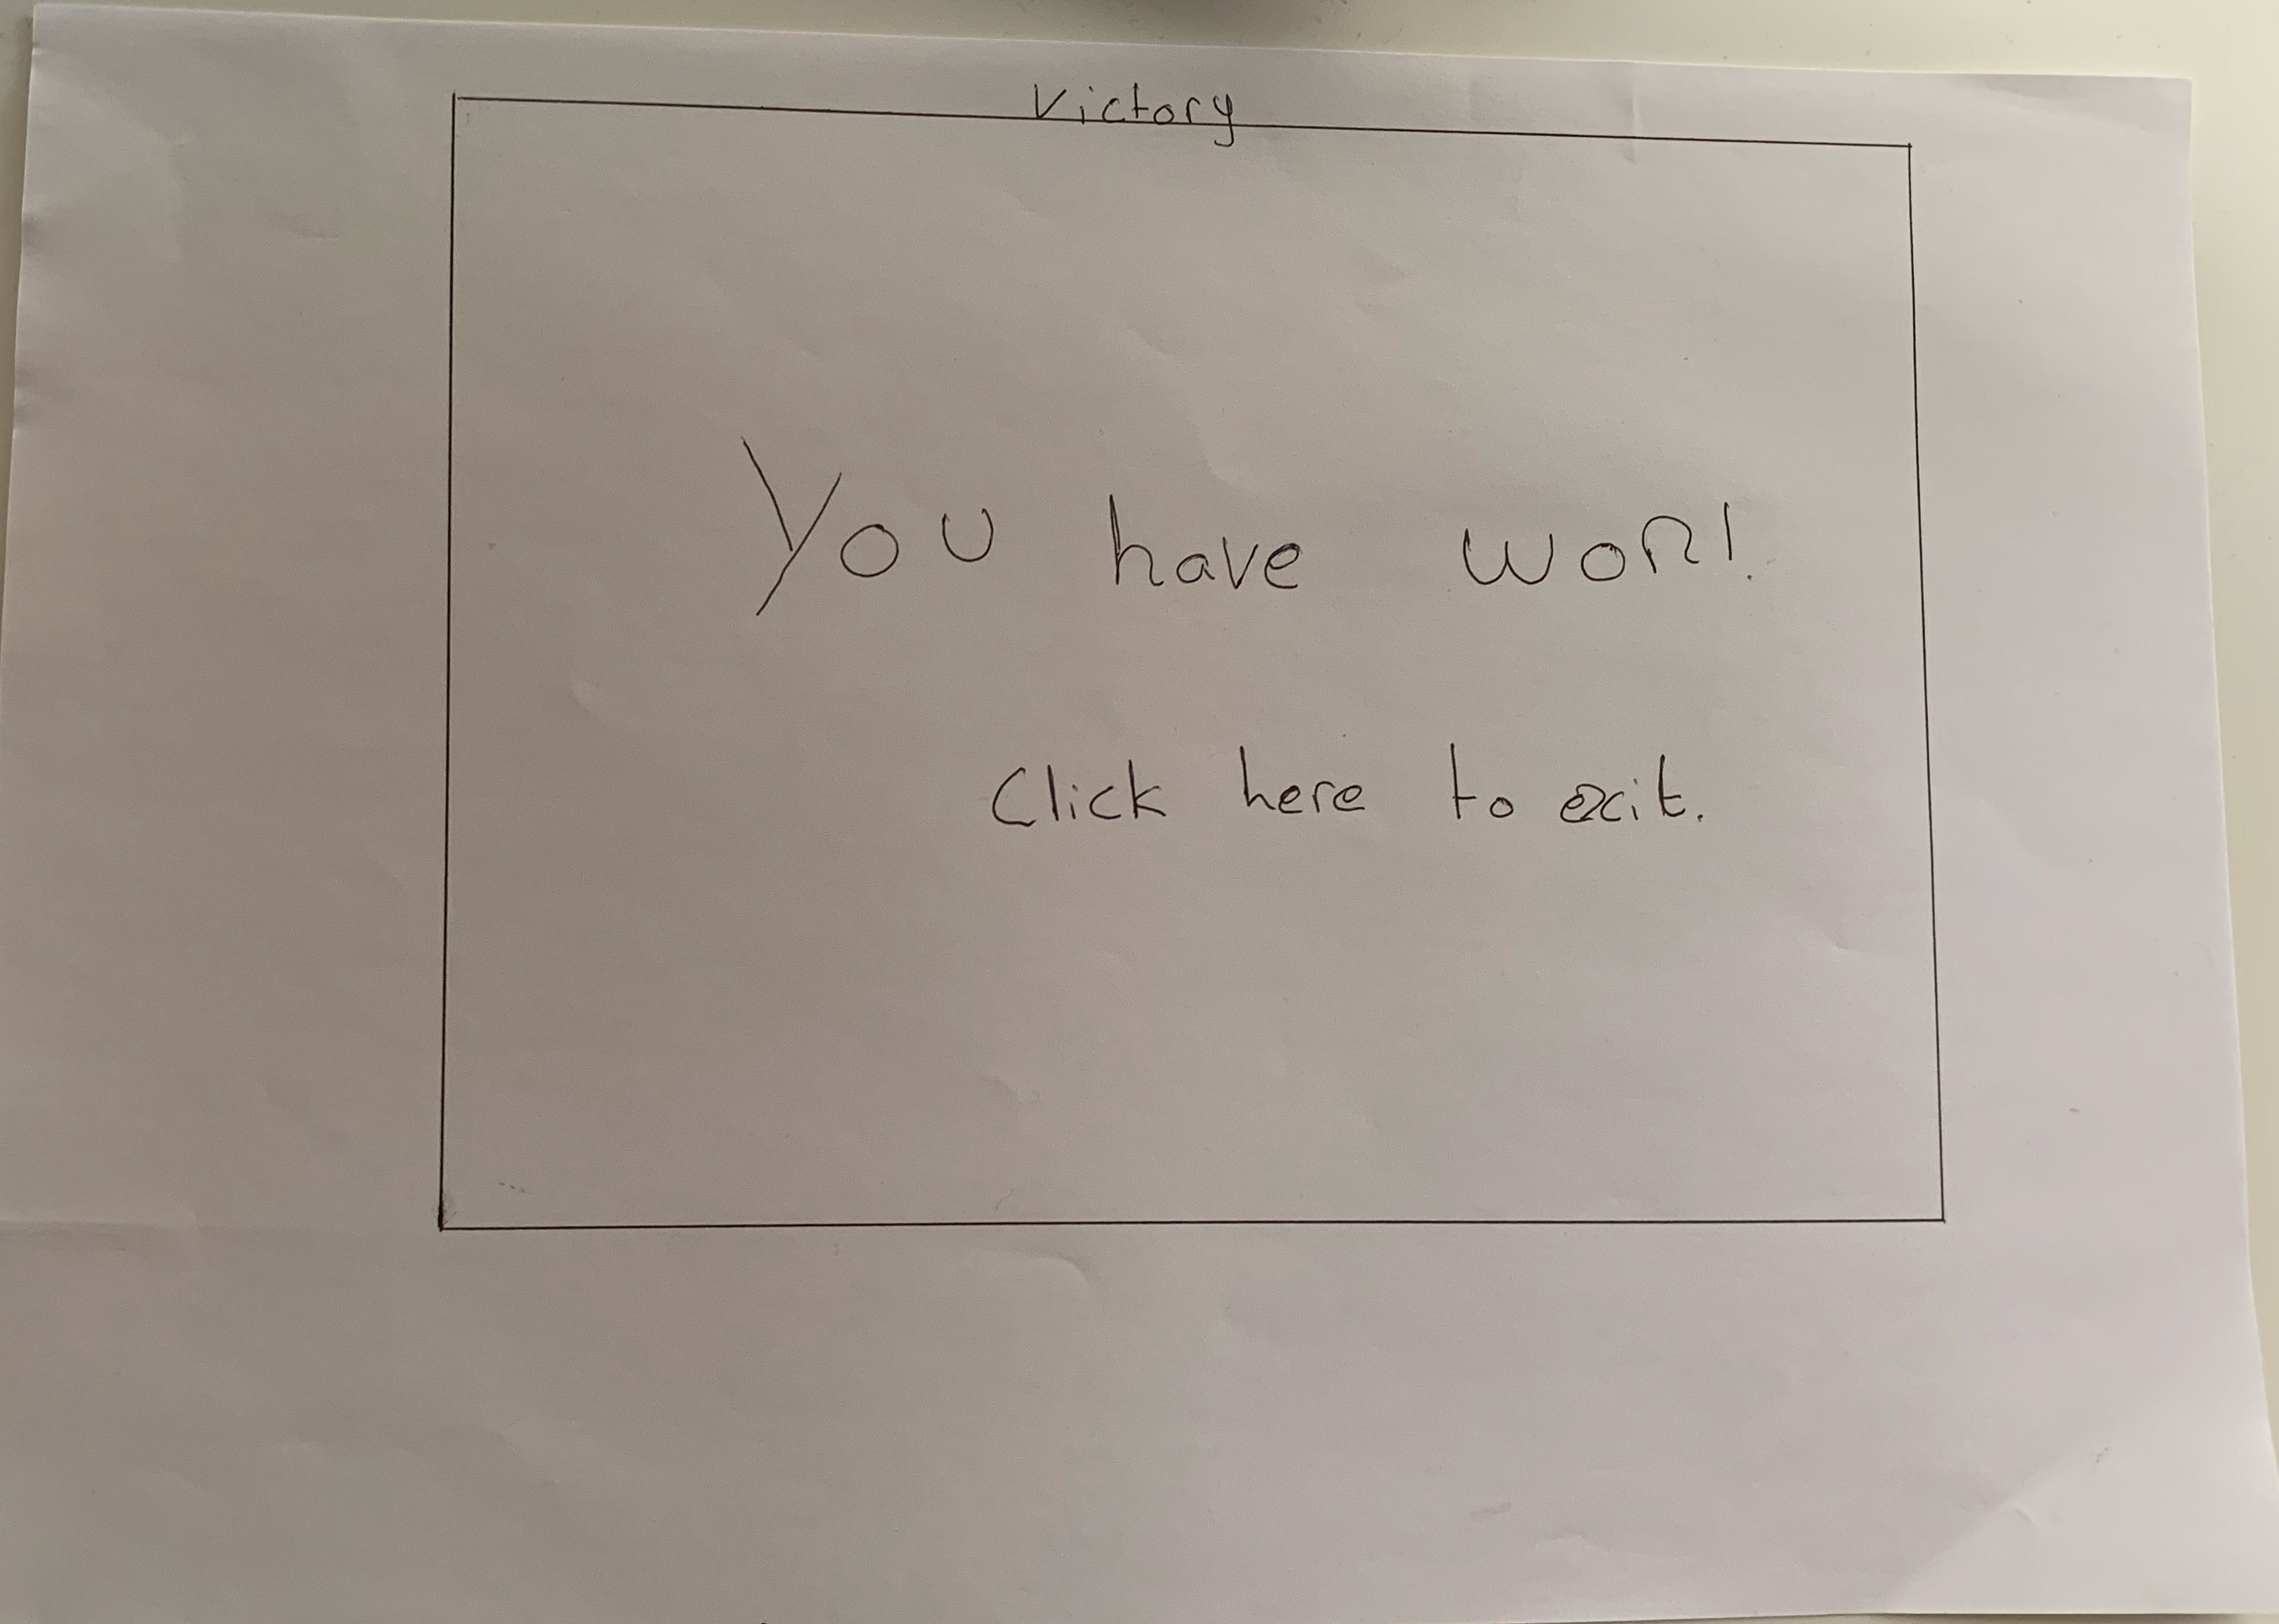 Victory
You have won!
Click here to exit.